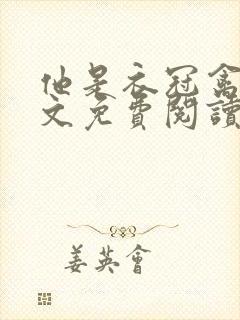 他是衣冠禽
文免費閱讀
姜英會